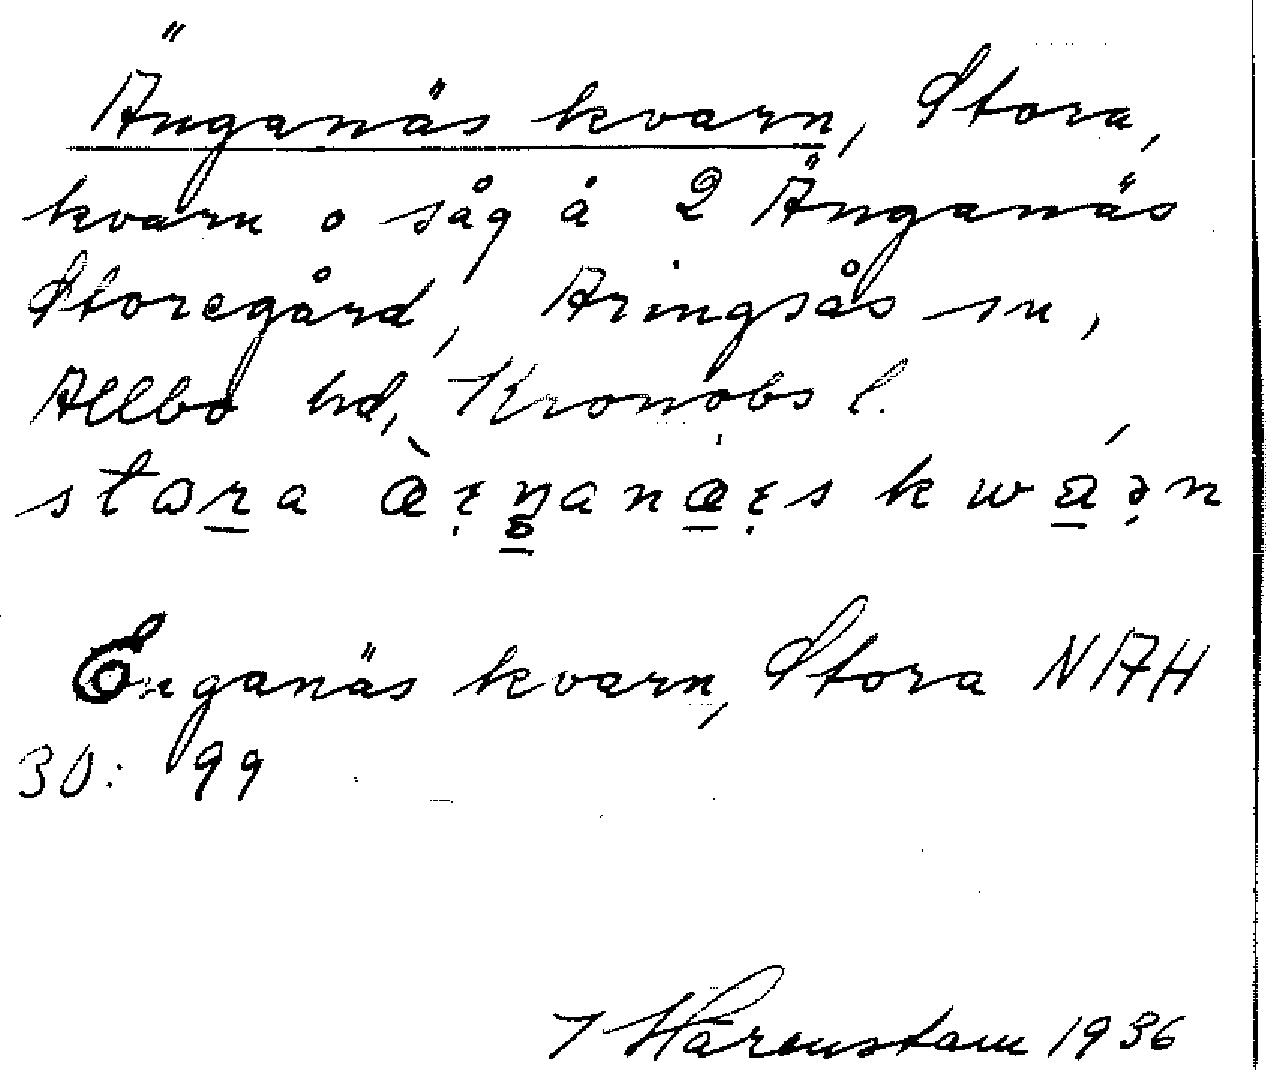 Änganäs kvarn, Stora,
kvarn o såg å 2 Änganäs
Storegård, Aringsås sn,
Allbo hd, Kronobs l.
stora æ̀ɪŋanæɪs kwáən
Enganäs kvarn, Stora NAH
30: 99
T Härenstam 1936